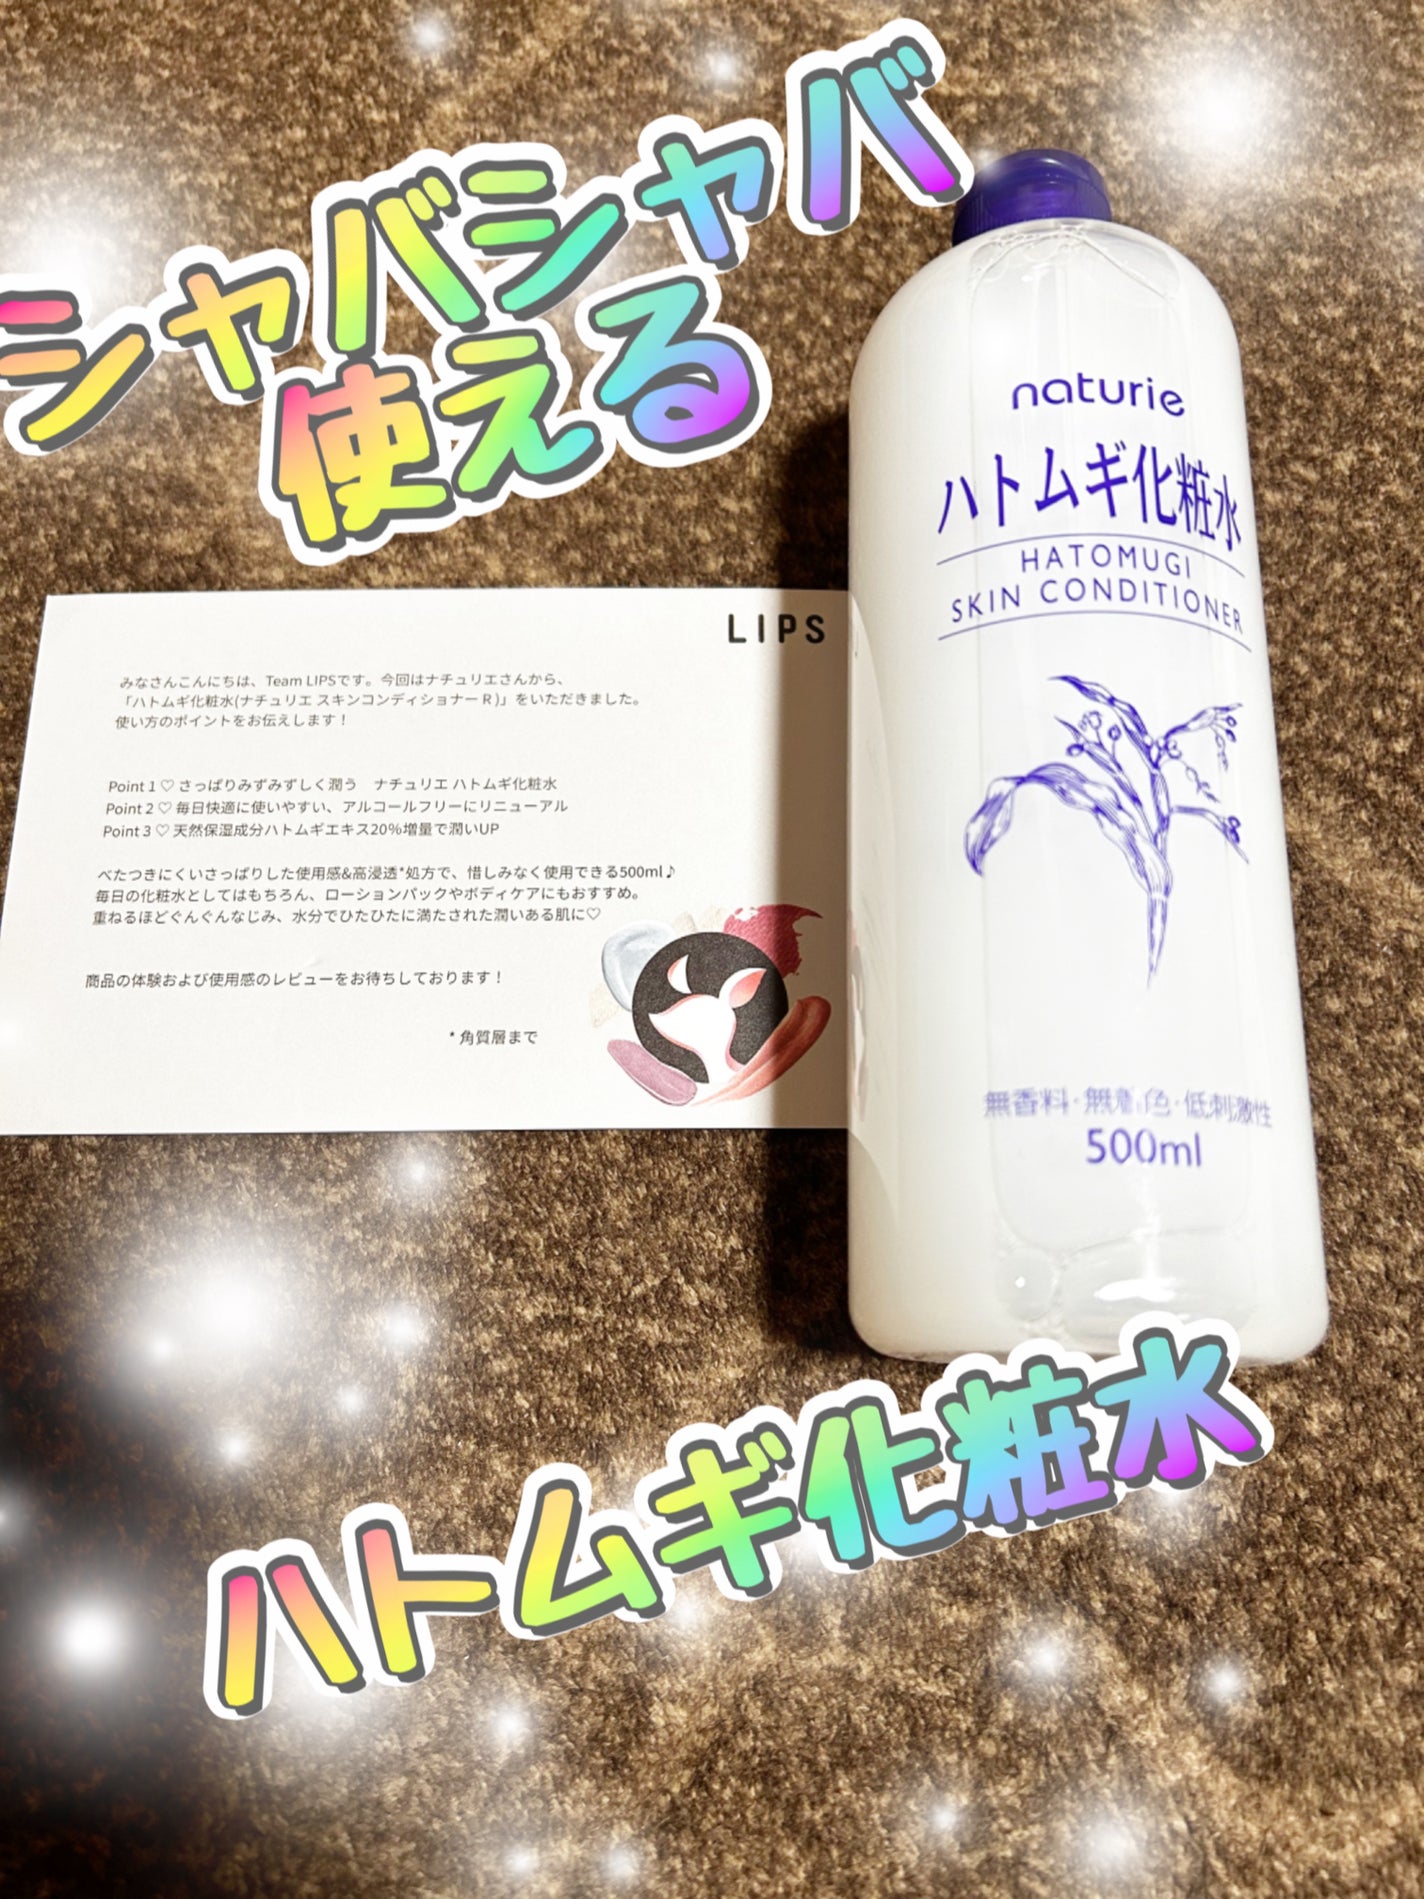 シャバシャバ
使える
naturie
ハトムギ化粧水
HATOMUGI
SKIN CONDITIONER
LIPS
みなさんこんにちは、Team LIPSです。今回はナチュリエさんから、
「ハトムギ化粧水(ナチュリエ スキンコンディショナー R )」をいただきました。
使い方のポイントをお伝えします！
Point 1 ♡ さっぱりみずみずしく潤う　ナチュリエ ハトムギ化粧水
Point 2 ♡ 毎日快適に使いやすい、アルコールフリーにリニューアル
Point 3 ♡ 天然保湿成分ハトムギエキス20%増量で潤いUP
べたつきにくいさっぱりした使用感&高浸透*処方で、惜しみなく使用できる500ml♪
毎日の化粧水としてはもちろん、ローションパックやボディケアにもおすすめ。
重ねるほどぐんぐんなじみ、水分でひたひたに満たされた潤いある肌に♡
商品の体験および使用感のレビューをお待ちしております！
* 角質層まで
無香料・無着色・低刺激性
500ml
ハトムギ化粧水